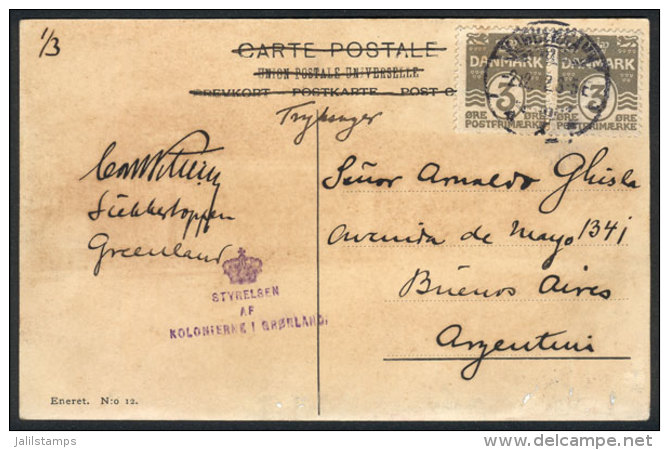 1/3
CARTE POSTALE
UNION POSTALE UNIVERSELLE
BREVKORT - POSTKARTE - POST C
Tryksager
DANMARK
3
ØRE ØRE
POSTFRIMÆRKE
DANMARK
3
ØRE ØRE
POSTFRIMÆRKE
Sukkertoppen
Greenland
STYRELSEN
AF
KOLONIERNE I GRØNLAND.
Señor Arnaldo Ghisla
Avenida de Mayo 1341
Buenos Aires
Argentini
Eneret. N:o 12.
jalilstamps
delcampe.net